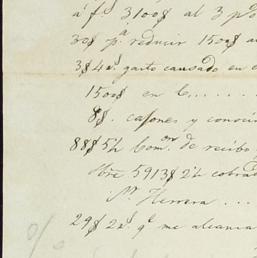 á fs. 3100$ al 3 p%
30$ pa. reducir 1500$ a
3$4rs gasto causado en e
1500$ en C......
8$. cajones y conoci
88$5½ Comon. de recibo
Hre 5913$2½ cobrad
Sr. Herrera...
29$2rs qe me alcanza
%